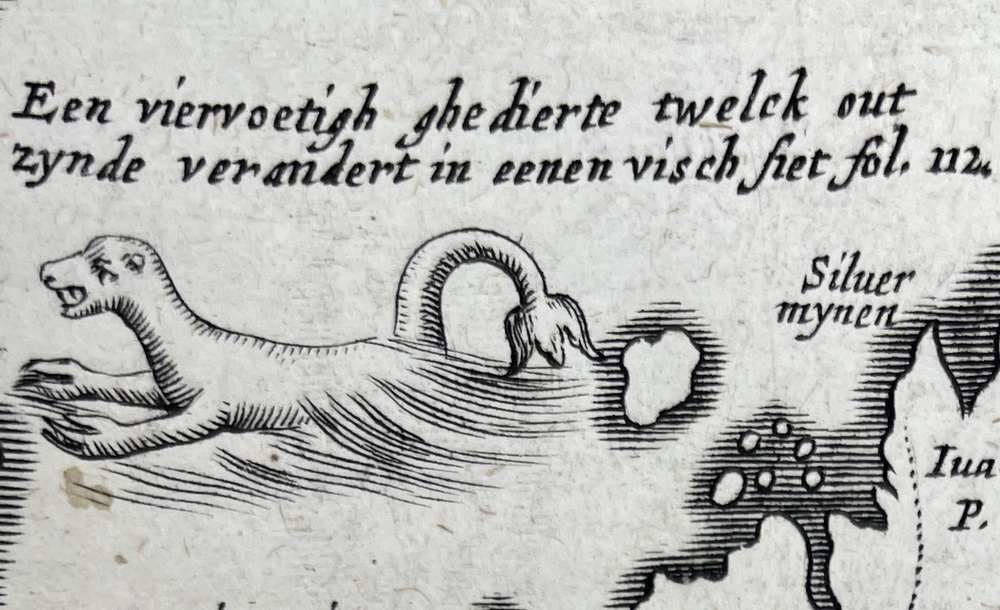 Een viervoetigh ghedierte twelck out
zynde verandert in eenen visch siet fol. 112.
Siluer
mynen
Iua
P.